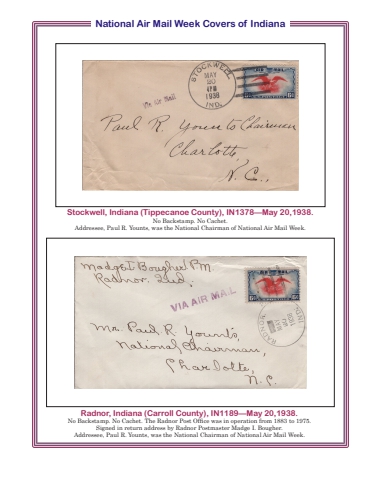 National Air Mail Week Covers of Indiana
STOCKWELL
MAY
20
1938
IND.
Via Air Mail
Paul R. Younts Chairman
Charlotte
N.C.,
Stockwell, Indiana (Tippecanoe County), IN1378—May 20,1938.
No Backstamp. No Cachet.
Addressee, Paul R. Younts, was the National Chairman of National Air Mail Week.
Madge I Bougher P.M.
Radnor. Ind.
VIA AIR MAIL
RADNOR
IND.
Mr. Paul R Younts,
National Chairman,
Charlotte,
N.C.
Radnor, Indiana (Carroll County), IN1189—May 20,1938.
No Backstamp. No Cachet. The Radnor Post Office was in operation from 1883 to 1975.
Signed in return address by Radnor Postmaster Madge I. Bougher.
Addressee, Paul R. Younts, was the National Chairman of National Air Mail Week.